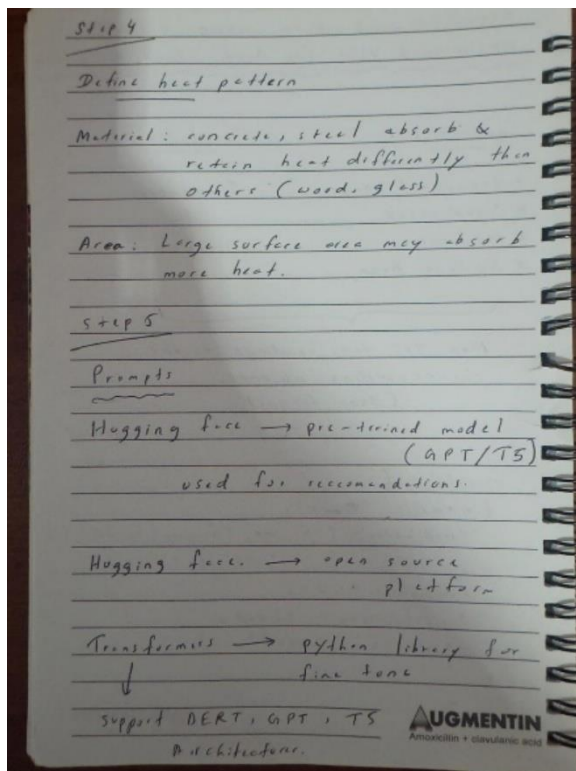 Step 4
Define heat pattern
Material: concrete, steel absorb &
retain heat differently then
others (wood, glass)
Area: Large surface area may absorb
more heat.
step 5
Prompts
Hugging face → pre-trained model
(GPT/T5)
used for reccomandations.
Hugging face. → open source
platform
Transformers → python library for
fine tone
↓
support BERT, GPT, T5
Architecture.
AUGMENTIN
Amoxicillin + clavulanic acid